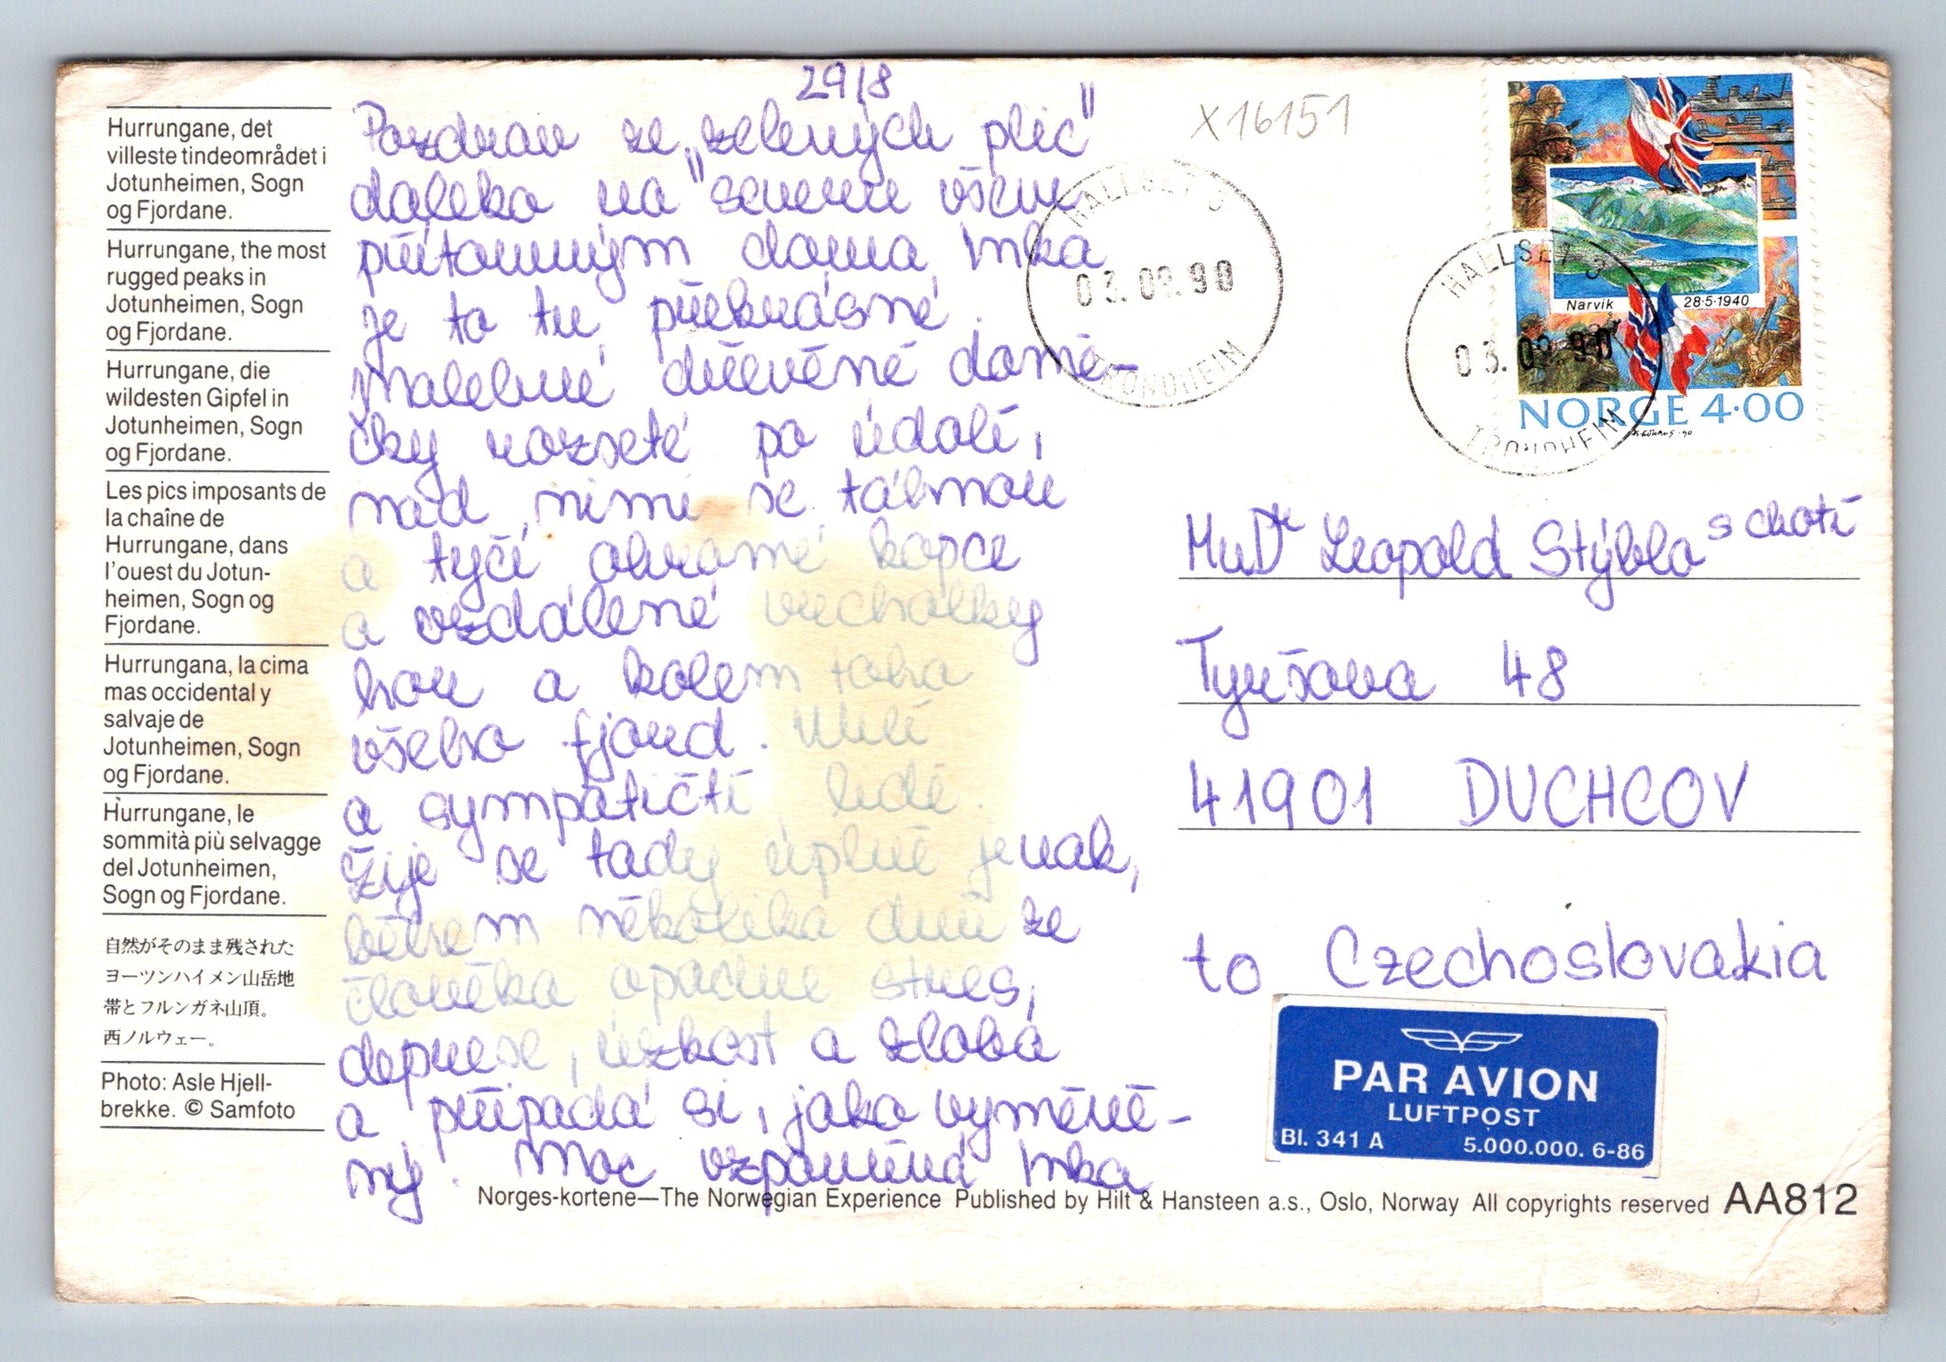 Hurrungane, det
villeste tindeområdet i
Jotunheimen, Sogn
og Fjordane.
Hurrungane, the most
rugged peaks in
Jotunheimen, Sogn
og Fjordane.
Hurrungane, die
wildesten Gipfel in
Jotunheimen, Sogn
og Fjordane.
Les pics imposants de
la chaîne de
Hurrungane, dans
l'ouest du Jotun-
heimen, Sogn og
Fjordane.
Hurrungana, la cima
mas occidental y
salvaje de
Jotunheimen, Sogn
og Fjordane.
Hurrungane, le
sommità più selvagge
del Jotunheimen,
Sogn og Fjordane.
自然がそのまま残された
ヨーツンハイメン山岳地
帯とフルンガネ山頂。
西ノルウェー。
Photo: Asle Hjell-
brekke. © Samfoto
29/8
Pozdrav ze „zelených plic"
daleko na severu všem
přítomným doma Inka
je to tu překrásné.
Malebné dřevěné domě-
čky rozseté po údolí,
nad nimi se táhnou
a tyčí ohromé kopce
a vzdálené vrcholky
hor a kolem toho
všeho fjord. Milí
a sympatičtí lidé.
Žije se tady úplně jenak,
během několika dnů ze
člověka opadne stres,
deprese, úzkost a zloba
a připadá si, jako vyměně-
ný. Moc vzpomíná Inka
X16151
HALLSET
03.09.90
TRONDHEIM
Narvik 28·5·1940
NORGE 4·00
HALLSET
03.09.90
TRONDHEIM
MuDr Leopold Stýblo s chotí
Tyršova 48
41901 DUCHCOV
to Czechoslovakia
PAR AVION
LUFTPOST
Bl. 341 A 5.000.000. 6-86
Norges-kortene—The Norwegian Experience Published by Hilt & Hansteen a.s., Oslo, Norway All copyrights reserved AA812